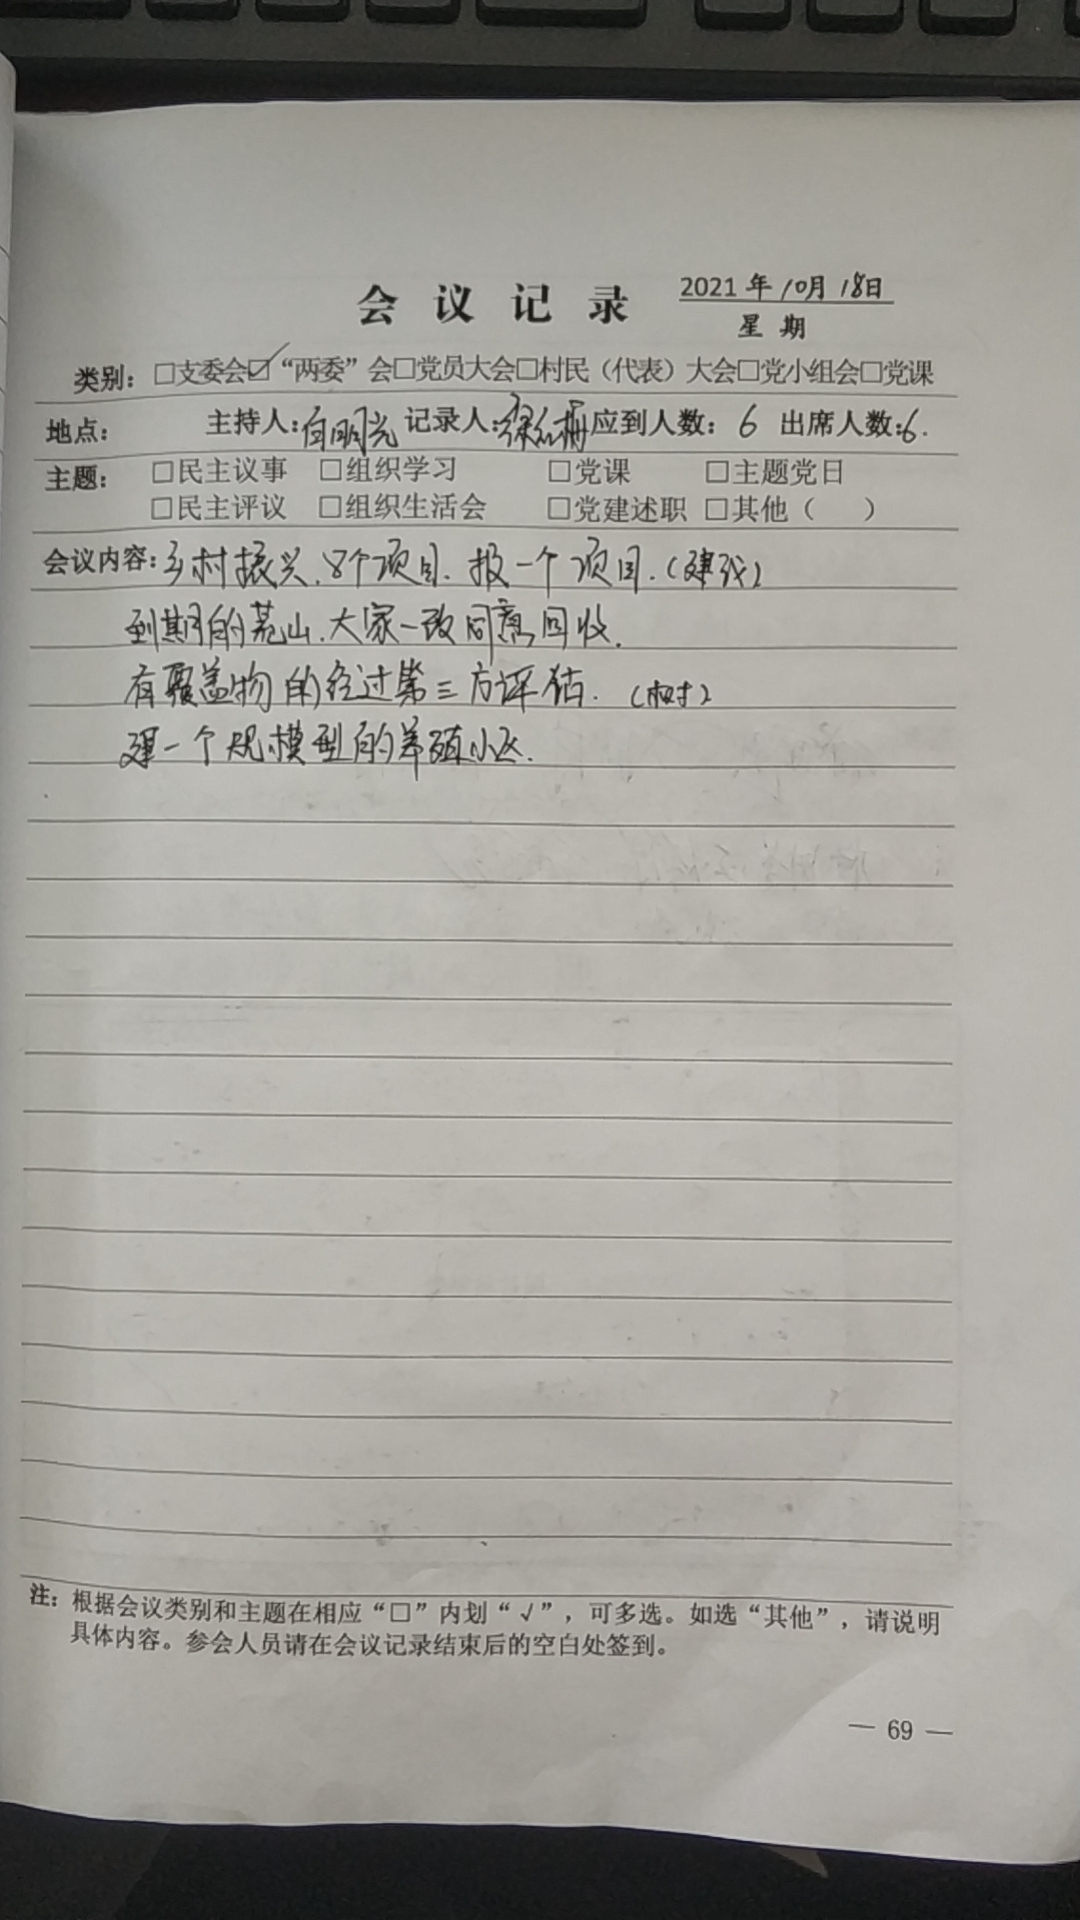 会议记录 2021年10月18日
星期
类别：□支委会☑“两委”会□党员大会□村民（代表）大会□党小组会□党课
地点： 主持人：白明光 记录人： 应到人数：6 出席人数：6.
主题：□民主议事 □组织学习 □党课 □主题党日
□民主评议 □组织生活会 □党建述职 □其他（ ）
会议内容：乡村振兴.8个项目.报一个项目.（建设）
到期的荒山.大家一致同意回收.
有覆盖物的经过第三方评估.（树）
建一个规模型的养殖小区.
注：根据会议类别和主题在相应“□”内划“√”，可多选。如选“其他”，请说明
具体内容。参会人员请在会议记录结束后的空白处签到。
— 69 —